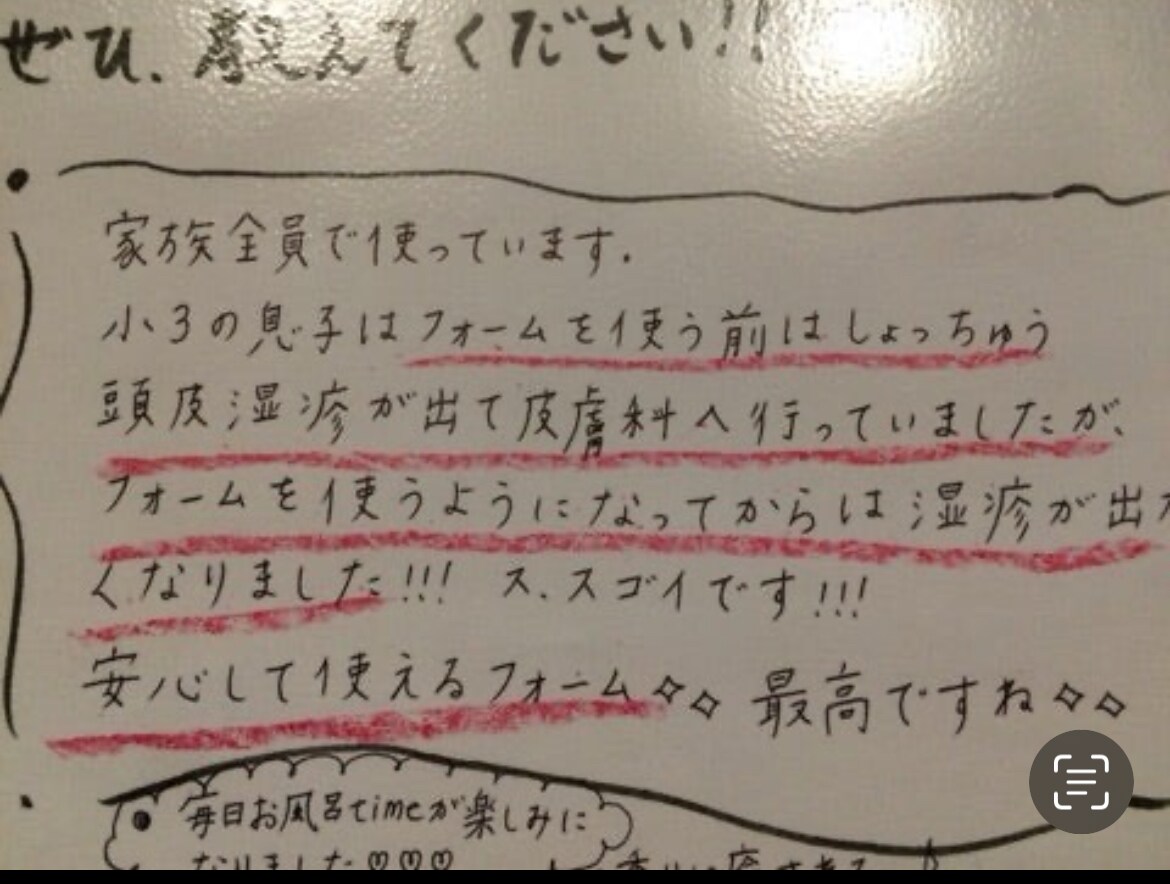 ぜひ、教えてください!!
家族全員で使っています.
小3の息子はフォームを使う前はしょっちゅう
頭皮湿疹が出て皮膚科へ行っていましたが、
フォームを使うようになってからは湿疹が出な
くなりました!!! ス、スゴイです!!!
安心して使えるフォーム✧✧ 最高ですね✧✧
● 毎日お風呂timeが楽しみに
なりました♡♡♡